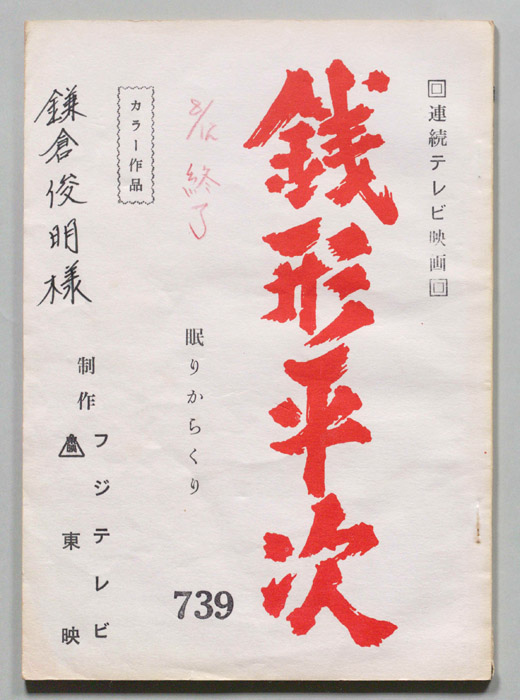 回連続テレビ映画回
銭形平次
眠りからくり
739
終了
カラー作品
鎌倉俊明様
制作
フジテレビ
東映